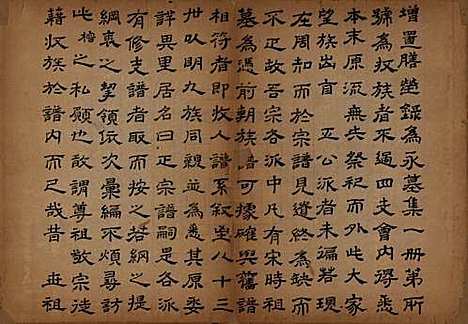 增置賸塋錄為永墓集一冊第所
號為収族者不過四支會內得悉
本末原流無失祭祀而此大家
望族出首 正公派者未遍若現
在周知而於宗譜見遺終為缺而
不正故吾宗各派中凡有宋時祖
墓為憑前朝族譜可據確與舊譜
相符者即收入譜系叙坐八十三
世以明九族同親並為悉其原委
詳異里居名曰正宗譜嗣是各派
有修支譜者取而按之若網之提
綱衷之望領依次彙編不煩尋訪
此 檜之私願也敢謂尊祖敬宗徒
藉収族於譜內而已哉昔 世祖